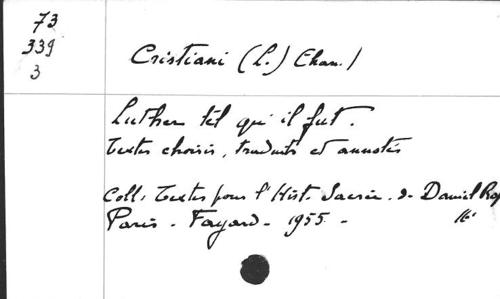 73
339
3
Cristiani (L.) Chan.)
Luther tel qu'il fut.
Textes choisis, traduits et annotés
Coll. Textes pour l'Hist. Sacrée. de Daniel Rop
Paris - Fayard - 1955 -